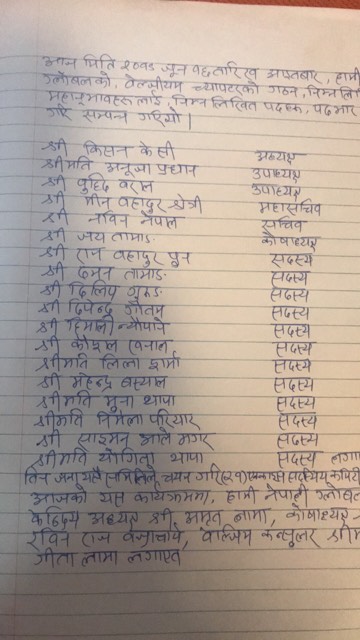 आज मिति २०१८ जून १८ तारिख आइतबार, हामी
ग्लोबलको, बेल्जीयम च्याप्टरको गठन, निम्न लि
महानुभावहरूलाई, निम्न लिखित पदहरू, पदभार
गरि सम्पन्न गरियो।
श्री किसन के सी अध्यक्ष
श्रीमति अनूजा प्रधान उपाध्यक्ष
श्री वुद्दि वराल उपाध्यक्ष
श्री मीन बहादुर क्षेत्री महासचिव
श्री नविन नेपाल सचिव
श्री जय तामाङ कोषाध्यक्ष
श्री राज बहादुर पून सदस्य
श्री दमन तामाङ सदस्य
श्री दिलिप गुरुङ सदस्य
श्री दिपेन्द्र गौतम सदस्य
श्री हिमानी न्यौपाने सदस्य
श्री कोइल खनाल सदस्य
श्रीमति लिला शर्मा सदस्य
श्री महेन्द्र बस्याल सदस्य
श्रीमति मुना थापा सदस्य
श्रीमति निर्मला परियार सदस्य
श्री साइमन आले मगर सदस्य
श्रीमति योगिता थापा सदस्य लगा
तिन जना समितिले चयन गरि
आजको यस कार्यक्रममा, हामी नेपाली ग्लोब
केन्द्रिय अध्यक्ष श्री अमृत लामा, कोषाध्यक्ष
रविन राज वज्राचार्य, वाल्जिम कन्सुलर श्रीम
गीता लामा लगाएत